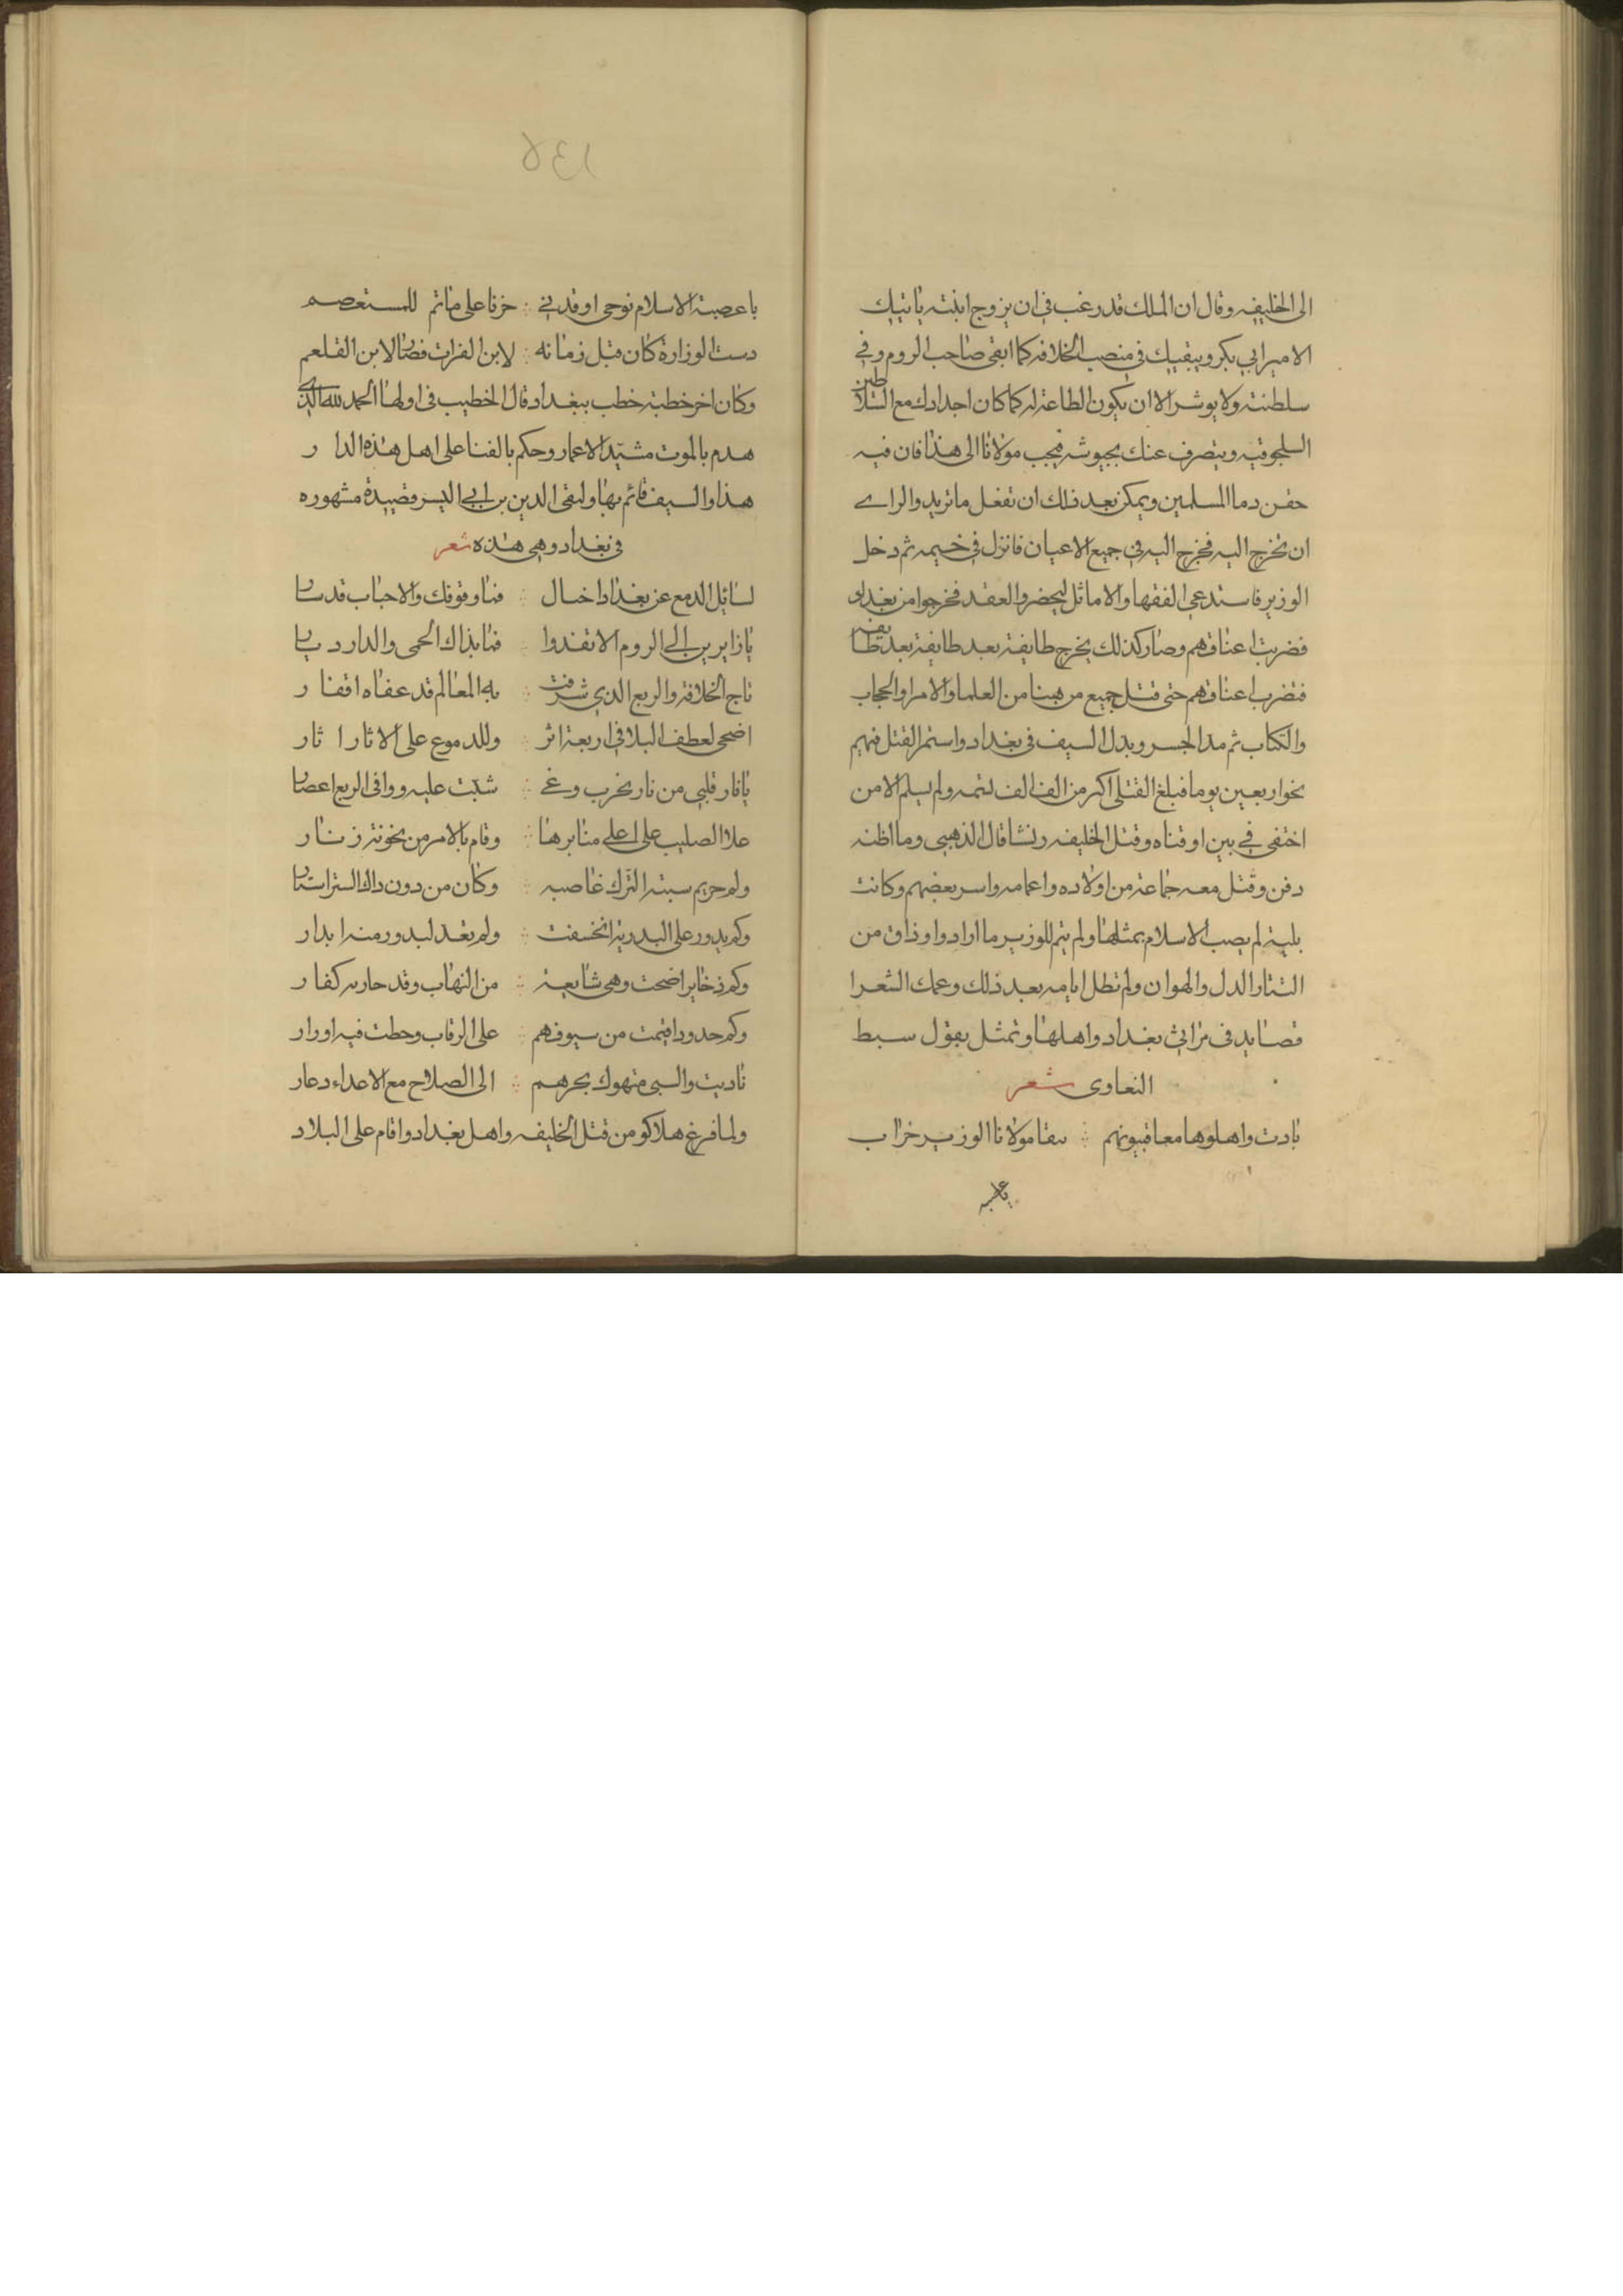 الى الخليفه وقال ان الملك قد رغب في ان يزوج ابنته بابنك
الامير ابي بكر ويبقيك في منصب الخلافه كما ابقى صاحب الروم في
سلطنته ولا يوثر الا ان يكون الطاعة له كما كان اجدادك مع السلاطين
السلجوقيه وينصرف عنك بجيوشه فيجب مولانا الى هذا فان فيه
حقن دما المسلمين ويمكن بعد ذلك ان تفعل ما تريد والراي
ان تخرج اليه فخرج اليه في جميع الاعيان فانزل في خيمه ثم دخل
الوزير فاستدعى الفقها والاماثل ليحضروا العقد فخرجوا من بغداد
فضربت اعناقهم وصار كذلك يخرج طايفة بعد طايفة بعد طايفه
فتضرب اعناقهم حتى قتل جميع من هنا من العلما والامرا والحجاب
والكتاب ثم مد الجسر وبدل السيف في بغداد واستمر القتل فيهم
نحو اربعين يوما فبلغ القتلى اكثر من الف الف نسمه ولم يسلم الا من
اختفى في بير او قناه وقتل الخليفه رفسا قال الذهبي وما اظنه
دفن وقتل معه جماعة من اولاده واعمامه واسر بعضهم وكانت
بلية لم يصب الاسلام بمثلها ولم يتم للوزير ما اراد وذاق من
التتار الدل والهوان ولم تطل ايامه بعد ذلك وعملت الشعرا
قصايد في مراثي بغداد واهلها وتمثل بقول سبط
التعاوى شعر
بادت واهلوها معا فبيوتهم ببقا مولانا الوزير خراب
يا عصبة
يا عصبة الاسلام نوحى واندبي حزنا على ما تم للمستعصم
دست الوزارة كان قبل زمانه لابن الفرات فصار لابن العلقم
وكان اخر خطبة خطب ببغداد قال الخطيب في اولها الحمد لله الذي
هدم بالموت مشيد الاعمار وحكم بالفنا على اهل هذه الدار
هذا والسيف قائم بها ولتقى الدين بن ابي اليسر قصيدة مشهوره
في بغداد وهي هذه شعر
لسائل الدمع عن بغداد اخبار فما وقوفك والاحباب قد ساروا
يا زايرين الى الزوراء لا تفدوا فما بذاك الحمى والدار ديار
تاج الخلافة والربع الذي شرفت به المعالم قد عفاه اقفار
اضحى لعطف البلا في اربعة اثر وللدموع على الاثار اثار
يا نار قلبي من نار لحرب وغى شبت عليه ووافى الربع اعصار
علا الصليب على اعلى منابرها وقام بالامر من يحويه زنار
وكم حريم سبته الترك غاصبه وكان من دون ذاك الستر استار
وكم بدور على البدرية انخسفت ولم يعد لبدور منه ابدار
وكم ذخاير اضحت وهي شايعة من النهاب وقد حازته كفار
وكم حدود اقيمت من سيوفهم على الرقاب وحطت فيه اوزار
ناديت والسبي مهتوك بجرهم الى الصلاح مع الاعداء دعار
ولما فرغ هلاكو من قتل الخليفه واهل بغداد واقام على البلاد